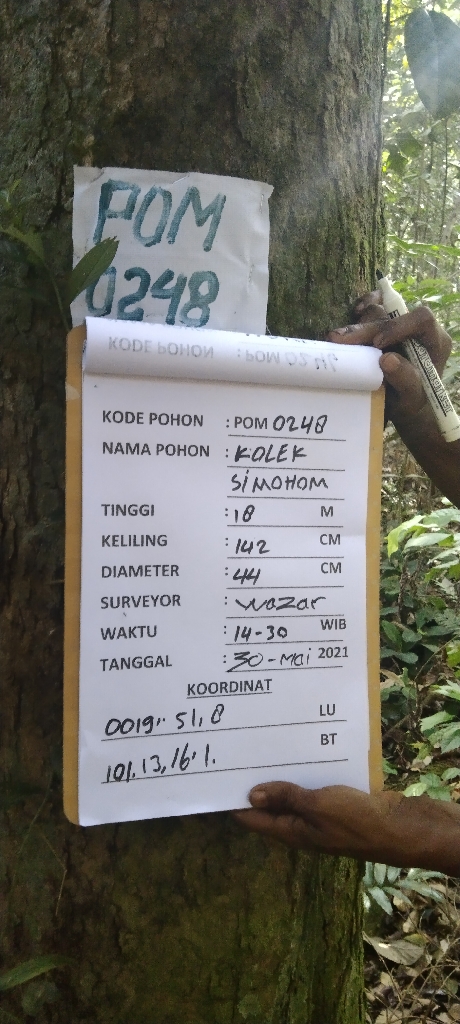 POM
0248
KODE POHON : POM 0248
NAMA POHON : KOLEK
SIMOHOM
TINGGI : 18 M
KELILING : 142 CM
DIAMETER : 44 CM
SURVEYOR : wazar
WAKTU : 14-30 WIB
TANGGAL : 30-mai 2021
KOORDINAT
0019.. 51, 8 LU
101. 13, 16. 1. BT